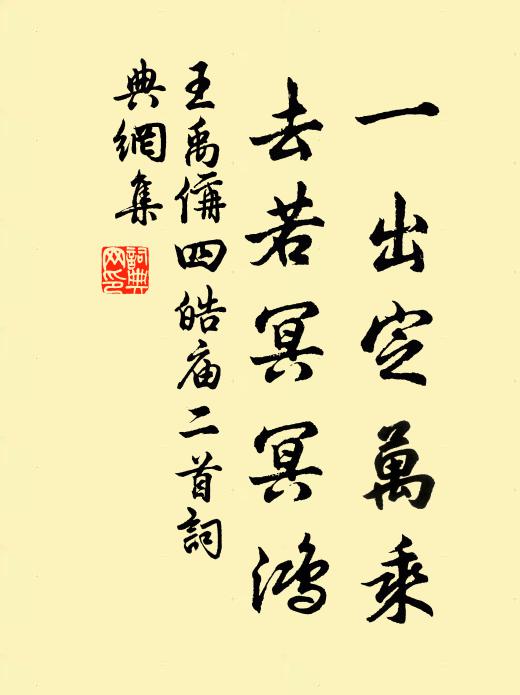 一出定萬乘
去若冥冥鴻
王禹偁四皓庙二首詞
典網集
詞典網印